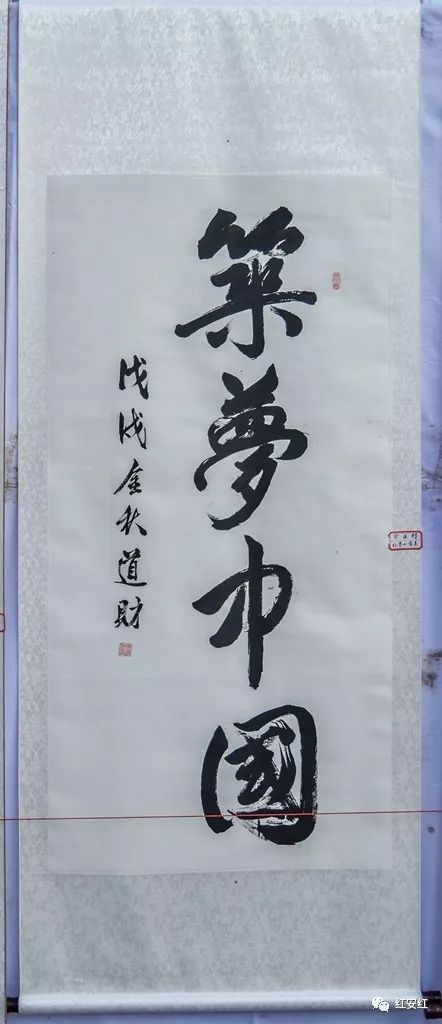 築夢中國
戊戌金秋道財
红安红